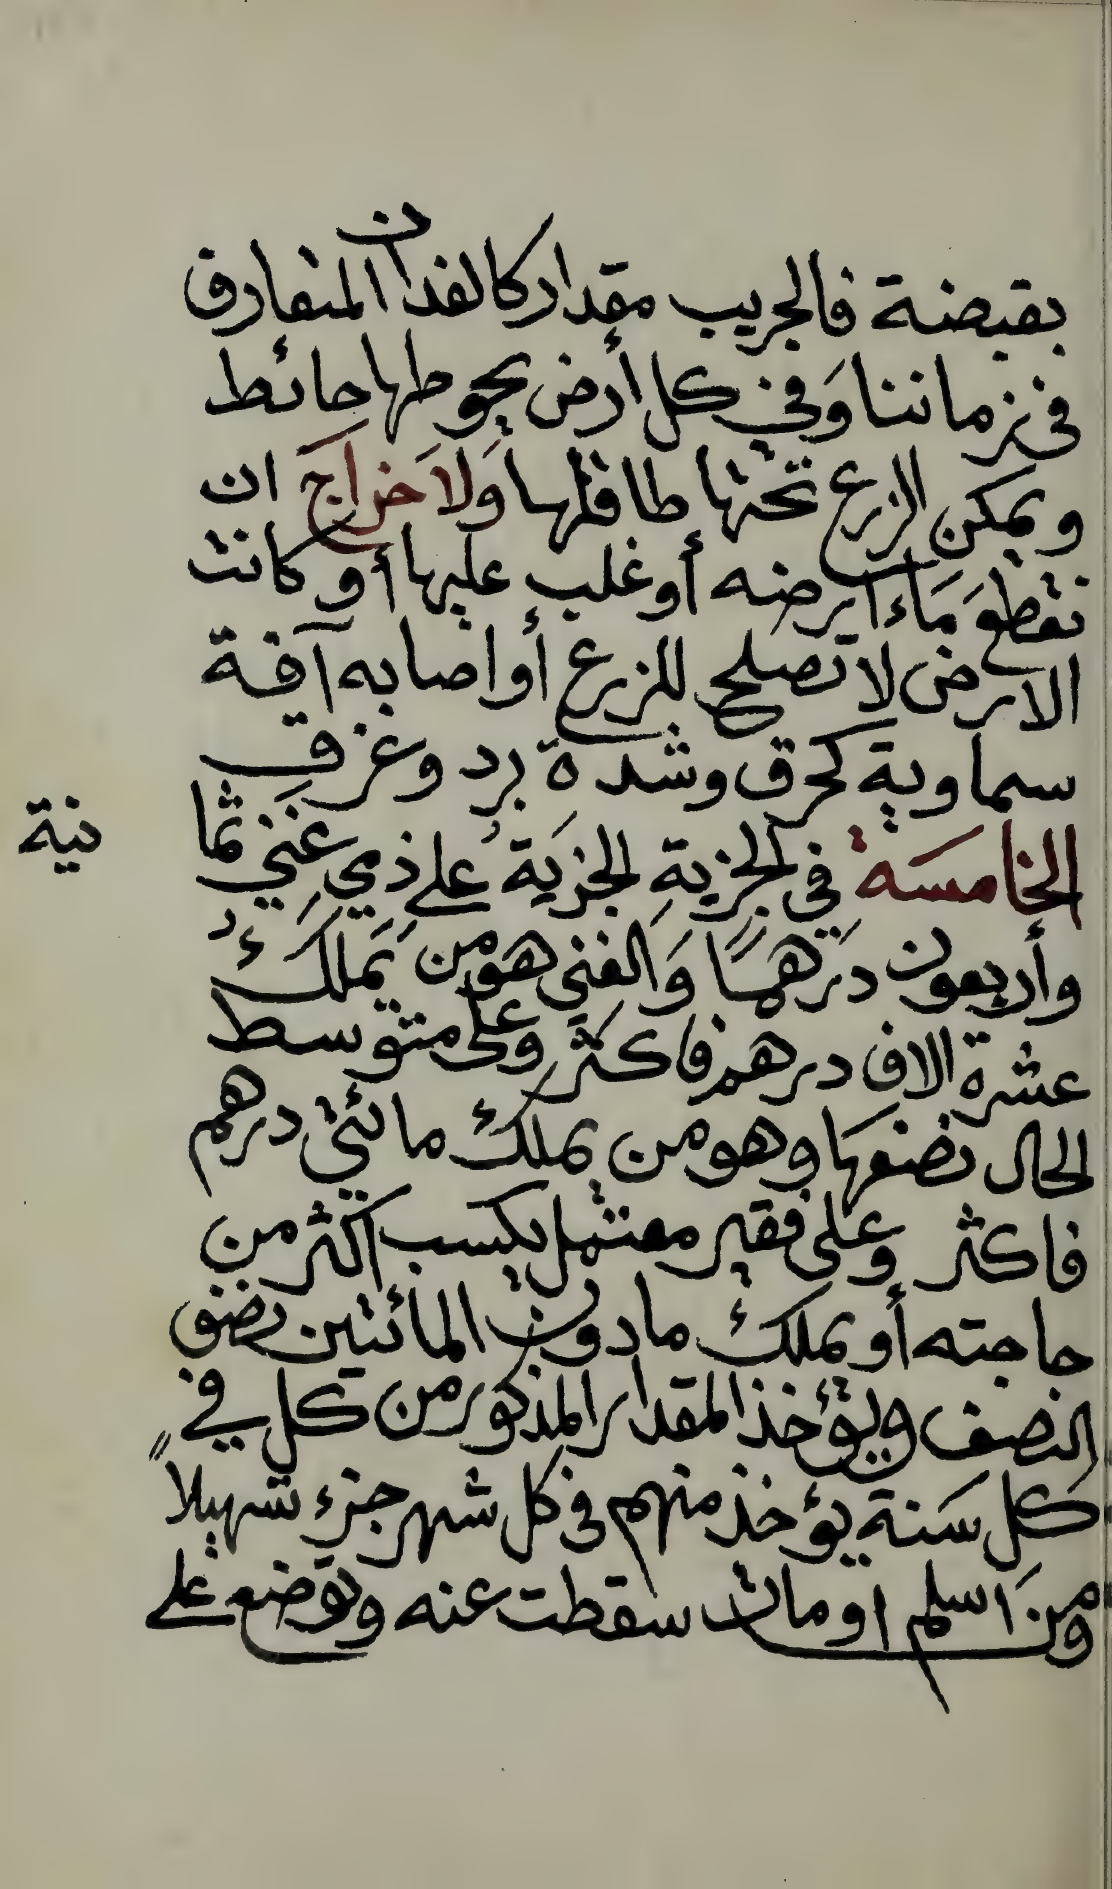 بقبضة فالجريب مقدار كالفدان المتعارف
في زماننا وَفي كل أرض يحوطها حائط
ويمكن الزرع تحتها طاقلها وَلاَ خراجَ ان
نقطعَ مَاء ارضه أو غلب عليها أو كانت
الارض لا تصلح للزرع أو اصابه آفة
سماوية كحرق وشدة برد وغرق
الخامسَة في الجزيةِ الجزيَةُ على ذمي غني ثما
نية
وأربعون درهمًا وَالغني هو من يَملكُ
عشرة الاف درهم فاكثر وعلى متوسط
الحال نصفهَا وهو من يملك مائتي درهم
فاكثر وعلى فقير معتمل يكسب اكثر من
حاجته أو يملك مادون المائتين نصف
النصف ويؤخذ المقدار المذكور من كل في
كل سَنة يؤخذ منهم في كل شهر جزء تسهيلاً
ومن اسلم او مات سقطت عنه وتوضع على